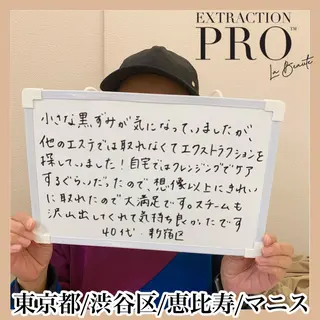 EXTRACTION
PRO™
La Beauté
小さな黒ずみが気になっていましたが、
他のエステでは取れなくてエクストラクションを
探していました！自宅ではクレンジングでケア
するぐらいだったので、想像以上にきれい
に取れたので大満足です。スチームも
沢山出してくれて気持ち良かったです
40代・新宿区
東京都/渋谷区/恵比寿/マニス